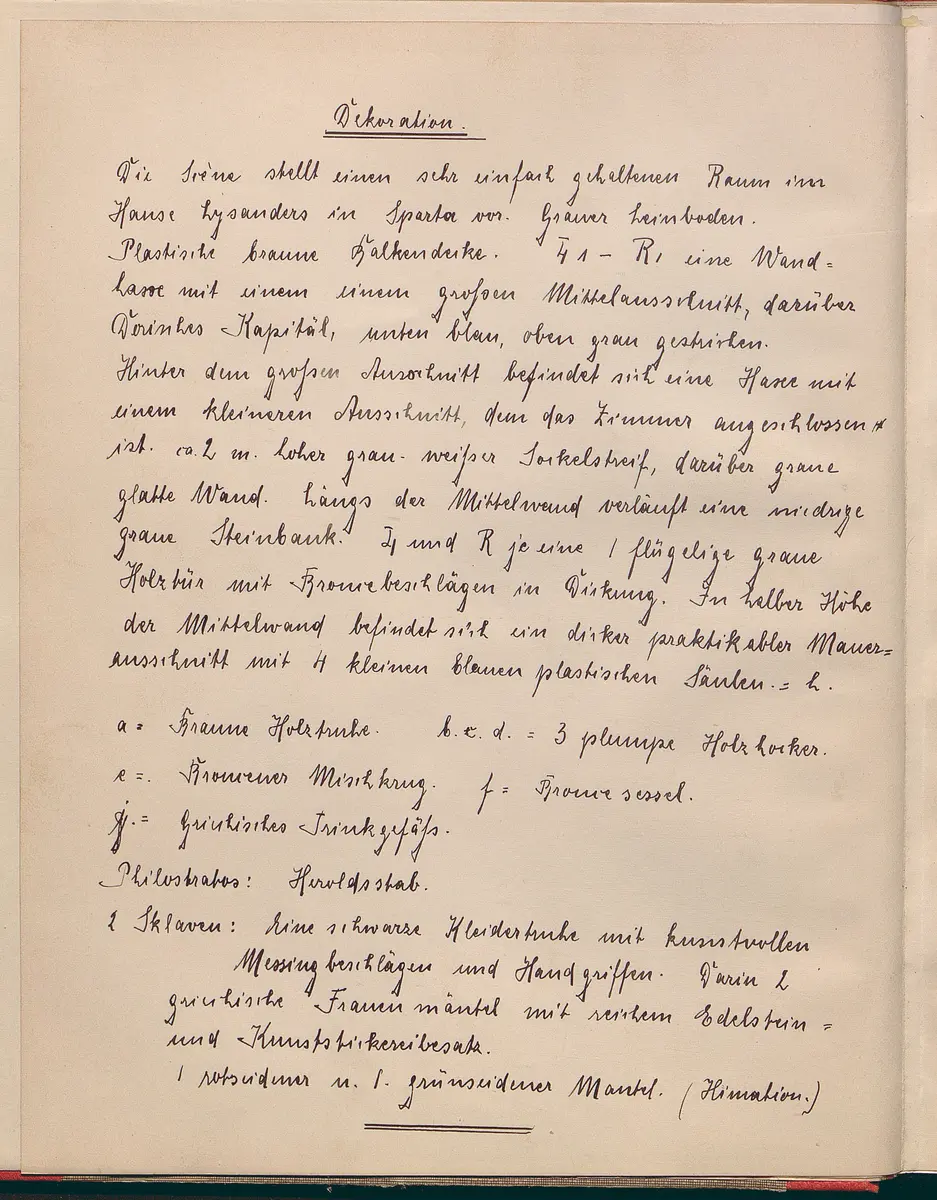 Dekoration.
Die Scene stellt einen sehr einfach gehaltenen Raum im
Hause Lysanders in Sparta vor. Grauer Leinboden.
Plastische braune Balkendecke. L1 – R1 eine Wand=
hasse mit einem einem großen Mittelausschnitt, darüber
Dorisches Kapitäl, unten blau, oben grau gestrichen.
Hinter dem großen Ausschnitt befindet sich eine Hasse mit
einem kleineren Ausschnitt, dem das Zimmer angeschlossen
ist. ca. 2 m. hoher grau-weißer Sockelstreif, darüber graue
glatte Wand. Längs der Mittelwand verläuft eine niedrige
graue Steinbank. L und R je eine 1 flügelige graue
Holztür mit Broncebeschlägen in Deckung. In halber Höhe
der Mittelwand befindet sich ein dicker praktikabler Mauer=
ausschnitt mit 4 kleinen blauen plastischen Säulen. = h.
a = Braune Holztruhe. b. c. d. = 3 plumpe Holzhocker.
e =. Broncener Mischkrug. f = Broncesessel.
g. = Griechisches Trinkgefäß.
Philostratos: Heroldsstab.
2 Sklaven: Eine schwarze Kleidertruhe mit kunstvollen
Messingbeschlägen und Handgriffen. Darin 2
griechische Frauenmäntel mit reichem Edelstein=
und Kunststickereibesatz.
1 rotseidener u. 1. grünseidener Mantel. (Himation.)